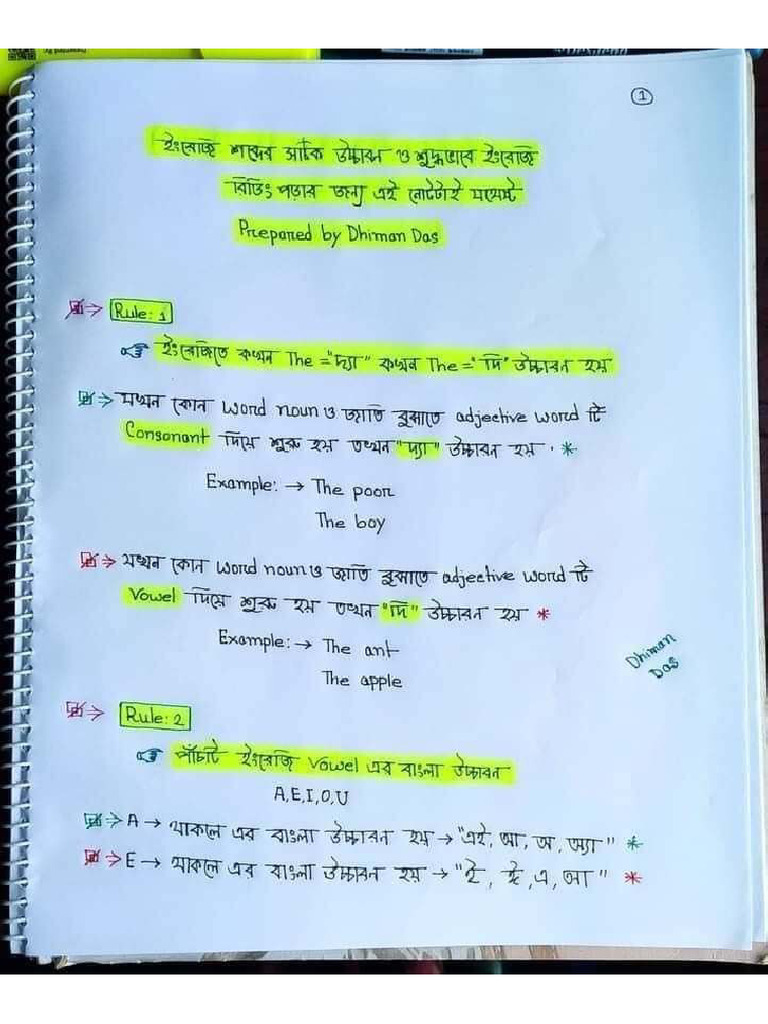 1
ইংরেজি শব্দের সঠিক উচ্চারন ও শুদ্ধভাবে ইংরেজি
রিডিং পড়ার জন্য এই নোটটাই যথেষ্ট
Prepared by Dhiman Das
⇒ Rule: 1
ইংরেজিতে কখন The = "দ্যা" কখন The = "দি" উচ্চারন হয়
⇒ যখন কোন word noun ও জাতি বুঝাতে adjective word টি
Consonant দিয়ে শুরু হয় তখন "দ্যা" উচ্চারন হয় . *
Example: → The poor
The boy
⇒ যখন কোন word noun ও জাতি বুঝাতে adjective word টি
Vowel দিয়ে শুরু হয় তখন "দি" উচ্চারন হয় *
Example: → The ant
The apple
Dhiman
Das
⇒ Rule: 2
পাঁচটি ইংরেজি vowel এর বাংলা উচ্চারন
A, E, I, O, U
⇒ A → থাকলে এর বাংলা উচ্চারন হয় → "এই, আ, অ, অ্যা" *
⇒ E → থাকলে এর বাংলা উচ্চারন হয় → "ই, ঈ, এ, আ" *